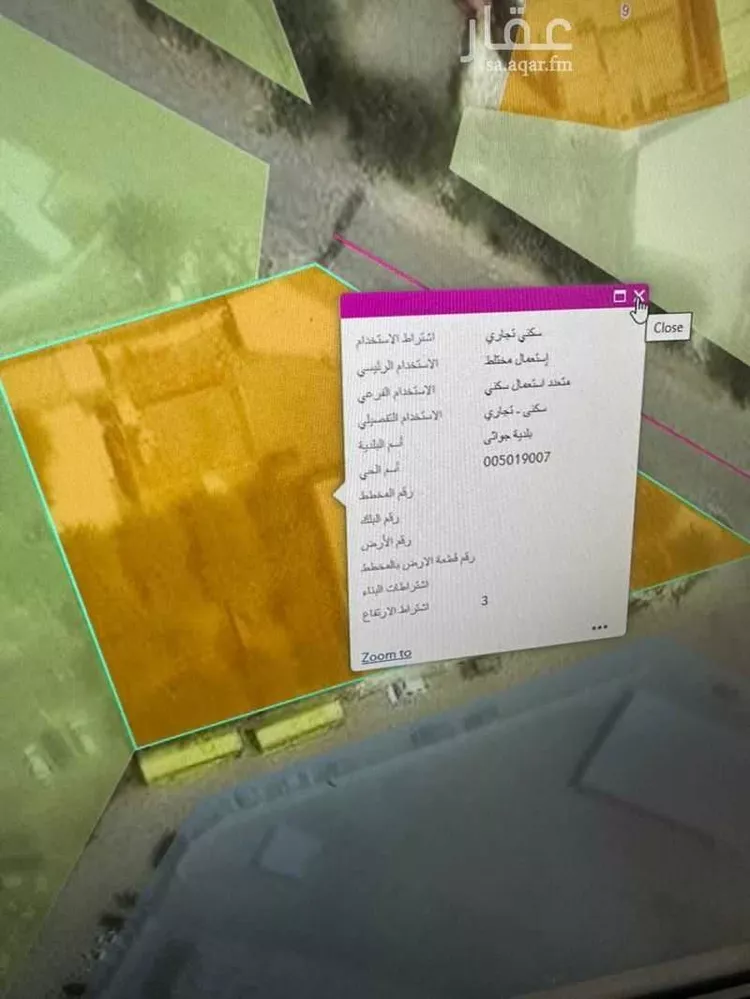 9
عقار
sa.aqar.fm
Close
اشتراط الاستخدام سكني تجاري
الاستخدام الرئيسي إستعمال مختلط
الاستخدام الفرعي متعدد استعمال سكني
الاستخدام التفصيلي سكنى - تجاري
أسم البلدية بلدية جواثى
أسم الحي 005019007
رقم المخطط
رقم البلك
رقم الأرض
رقم قطعة الارض بالمخطط
اشتراطات البناء
اشتراط الارتفاع 3
Zoom to